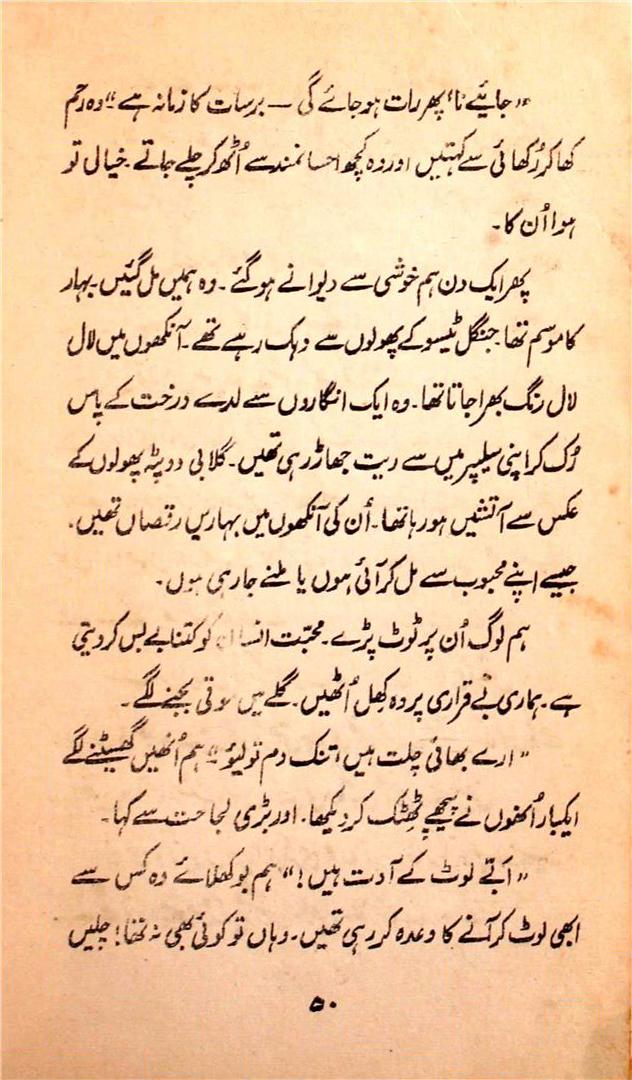 ”جائیے نا‘ پھر رات ہو جائے گی — برسات کا زمانہ ہے“ وہ رحم
کھا کر رُکھائی سے کہتیں اور وہ کچھ احسانمند سے اُٹھ کر چلے جاتے۔ خیال تو
ہوا اُن کا۔
پھر ایک دن ہم خوشی سے دیوانے ہو گئے۔ وہ ہمیں مل گئیں۔ بہار
کا موسم تھا۔ جنگل ٹیسو کے پھولوں سے دہک رہے تھے۔ آنکھوں میں لال
لال رنگ بھرا جاتا تھا۔ وہ ایک انگاروں سے لدے درخت کے پاس
رُک کر اپنی سلیپر میں سے ریت جھاڑ رہی تھیں۔ گلابی دوپٹہ پھولوں کے
عکس سے آتشیں ہو رہا تھا۔ اُن کی آنکھوں میں بہاریں رقصاں تھیں۔
جیسے اپنے محبوب سے مل کر آئی ہوں یا ملنے جا رہی ہوں۔
ہم لوگ اُن پر ٹوٹ پڑے۔ محبّت انسان کو کتنا بے بس کر دیتی
ہے۔ ہماری بے قراری پر وہ کھِل اُٹھیں۔ گلے میں موتی بجنے لگے۔
”ارے بھائی چلت ہیں، تنک دم تو لیؤ“ ہم اُنھیں گھسیٹنے لگے
ایکبار اُنھوں نے پیچھے ٹھٹک کر دیکھا۔ اور بڑی لجاحت سے کہا۔
”اَبّے لوٹ کے آوت ہیں!“ ہم بوکھلائے وہ کس سے
ابھی لوٹ کر آنے کا وعدہ کر رہی تھیں۔ وہاں تو کوئی بھی نہ تھا! چلیں
۵۰